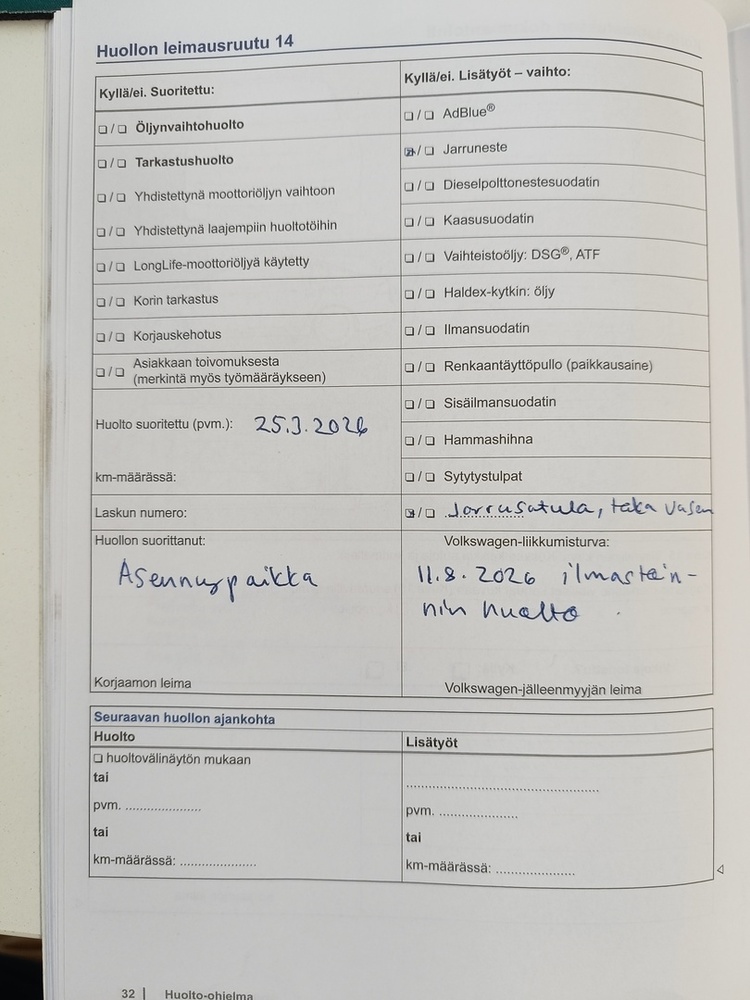 Huollon leimausruutu 14
Kyllä/ei. Suoritettu:
❏ / ❏ Öljynvaihtohuolto
❏ / ❏ Tarkastushuolto
❏ / ❏ Yhdistettynä moottoriöljyn vaihtoon
❏ / ❏ Yhdistettynä laajempiin huoltotöihin
❏ / ❏ LongLife-moottoriöljyä käytetty
❏ / ❏ Korin tarkastus
❏ / ❏ Korjauskehotus
❏ / ❏ Asiakkaan toivomuksesta
(merkintä myös työmääräykseen)
Huolto suoritettu (pvm.): 25.3.2026
km-määrässä:
Laskun numero:
Huollon suorittanut:
Asennuspaikka
Korjaamon leima
Kyllä/ei. Lisätyöt – vaihto:
❏ / ❏ AdBlue®
☒ / ❏ Jarruneste
❏ / ❏ Dieselpolttonestesuodatin
❏ / ❏ Kaasusuodatin
❏ / ❏ Vaihteistoöljy: DSG®, ATF
❏ / ❏ Haldex-kytkin: öljy
❏ / ❏ Ilmansuodatin
❏ / ❏ Renkaantäyttöpullo (paikkausaine)
❏ / ❏ Sisäilmansuodatin
❏ / ❏ Hammashihna
❏ / ❏ Sytytystulpat
☒ / ❏ Jarrusatula, taka vasen
Volkswagen-liikkumisturva:
11.8.2026 ilmastoin-
nin huolto.
Volkswagen-jälleenmyyjän leima
Seuraavan huollon ajankohta
Huolto
❏ huoltovälinäytön mukaan
tai
pvm. ....................
tai
km-määrässä: ....................
Lisätyöt
..................................................
pvm. ....................
tai
km-määrässä: ....................
32 | Huolto-ohjelma